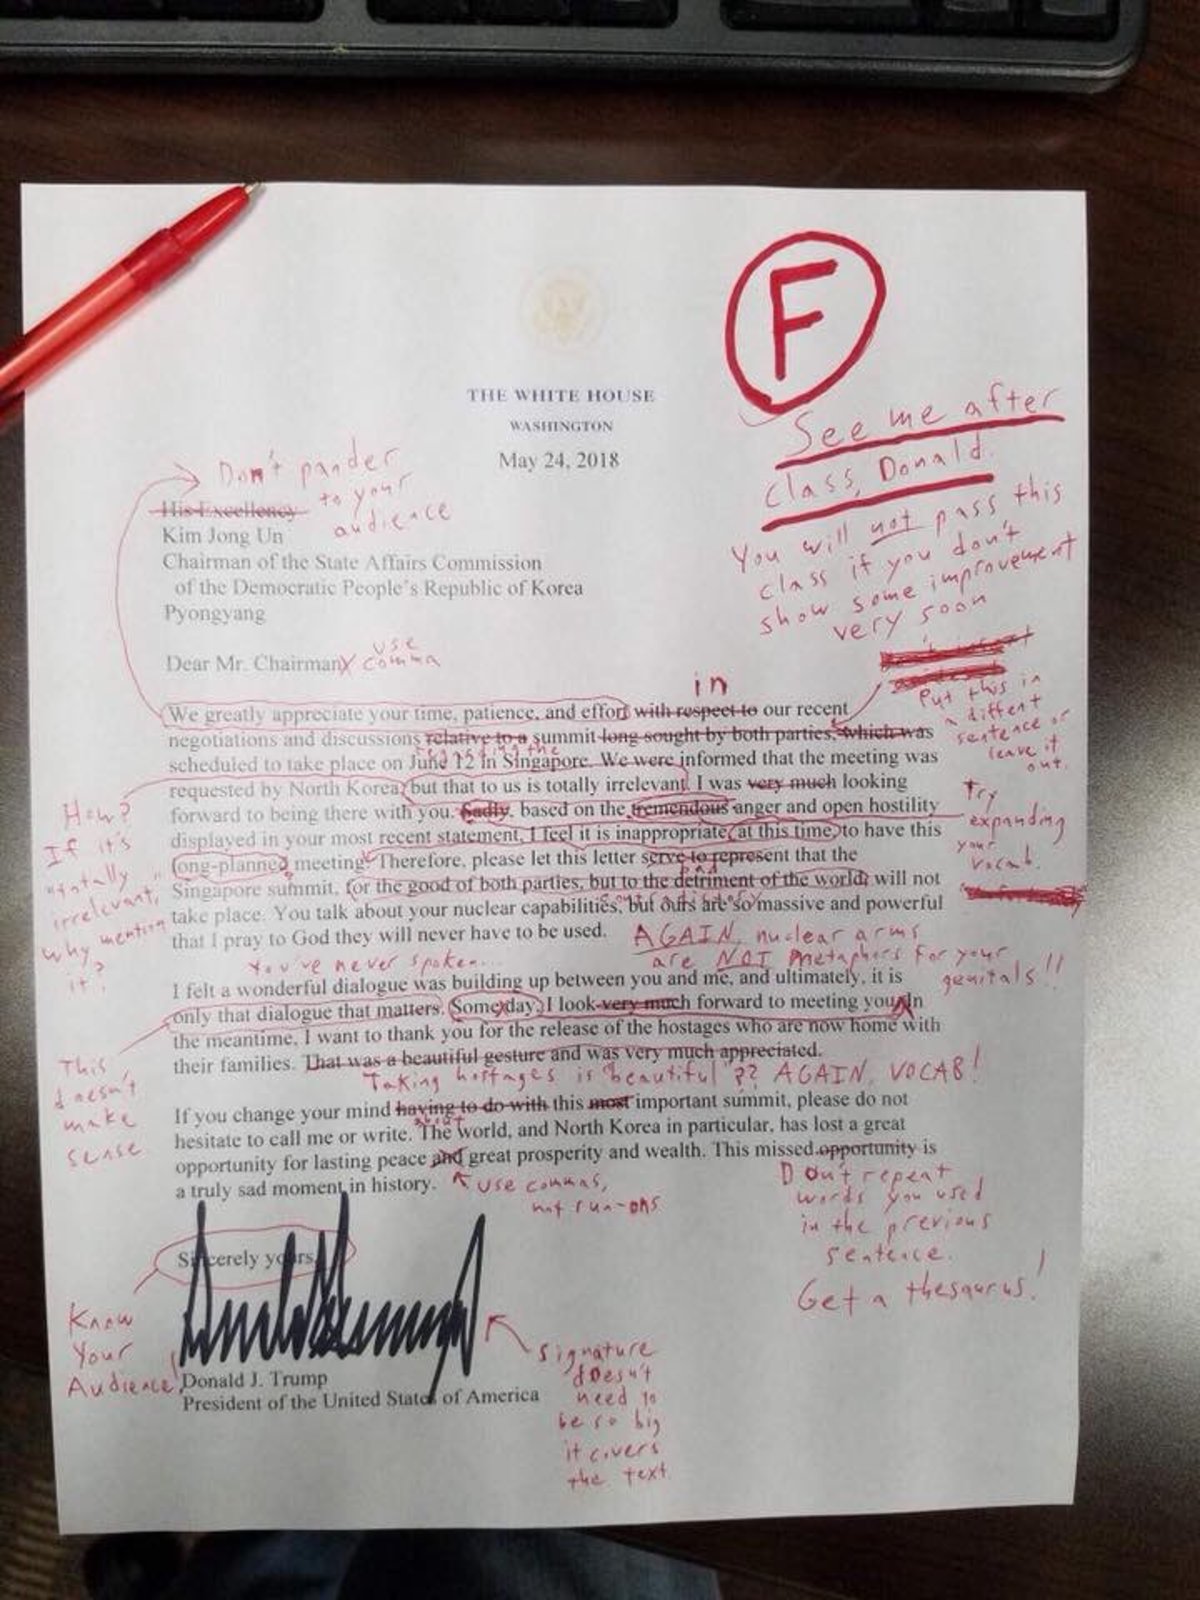 F
See me after
class, Donald.
You will not pass this
class if you don't
show some improvement
very soon
THE WHITE HOUSE
WASHINGTON
May 24, 2018
Don't pander
to your
audience
His Excellency
Kim Jong Un
Chairman of the State Affairs Commission
of the Democratic People's Republic of Korea
Pyongyang
Dear Mr. Chairman:
use
comma
in
We greatly appreciate your time, patience, and effort with respect to our recent
negotiations and discussions relative to a summit long sought by both parties, which was
regarding the
scheduled to take place on June 12 in Singapore. We were informed that the meeting was
requested by North Korea, but that to us is totally irrelevant. I was very much looking
forward to being there with you. Sadly, based on the tremendous anger and open hostility
displayed in your most recent statement, I feel it is inappropriate, at this time, to have this
long-planned meeting. Therefore, please let this letter serve to represent that the
Singapore summit, for the good of both parties, but to the detriment of the world, will not
take place. You talk about your nuclear capabilities, but ours are so massive and powerful
that I pray to God they will never have to be used.
Put this in
a diffent
sentence or
leave it
out.
Try
expanding
your
vocab.
How?
If it's
"totally
irrelevant,"
why mention
it?
AGAIN, nuclear arms
are NOT metaphors for your
genitals!!
You've never spoken...
I felt a wonderful dialogue was building up between you and me, and ultimately, it is
only that dialogue that matters. Some day, I look very much forward to meeting you. In
the meantime, I want to thank you for the release of the hostages who are now home with
their families. That was a beautiful gesture and was very much appreciated.
This
doesn't
make
sense
Taking hostages is "beautiful"?? AGAIN, VOCAB!
If you change your mind having to do with this most important summit, please do not
about
hesitate to call me or write. The world, and North Korea in particular, has lost a great
opportunity for lasting peace and great prosperity and wealth. This missed opportunity is
a truly sad moment in history.
use commas,
not run-ons
Don't repeat
words you used
in the previous
sentence.
Get a thesaurus!
Sincerely yours,
Know
Your
Audience!
Donald J. Trump
President of the United States of America
signature
doesn't
need to
be so big
it covers
the text